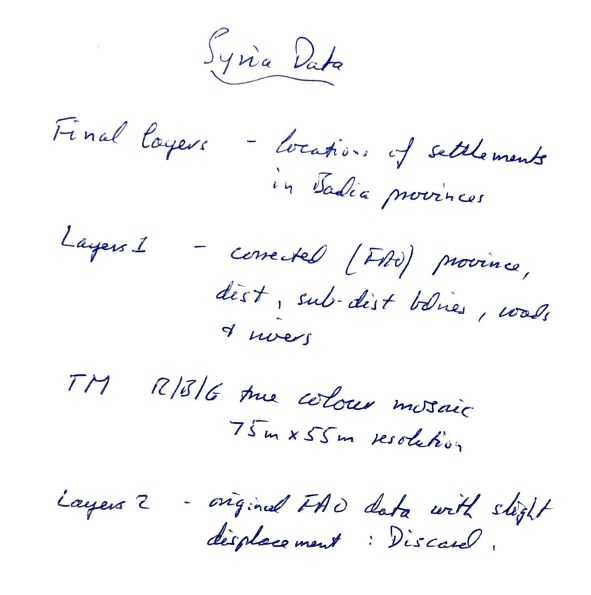 Syria Data
Final layers - locations of settlements
in Badia provinces
Layers 1 - corrected (FAO) province,
dist, sub-dist bdries, roads
& rivers
TM R/B/G true colour mosaic
75m x 55m resolution
Layers 2 - original FAO data with slight
displacement : Discard.